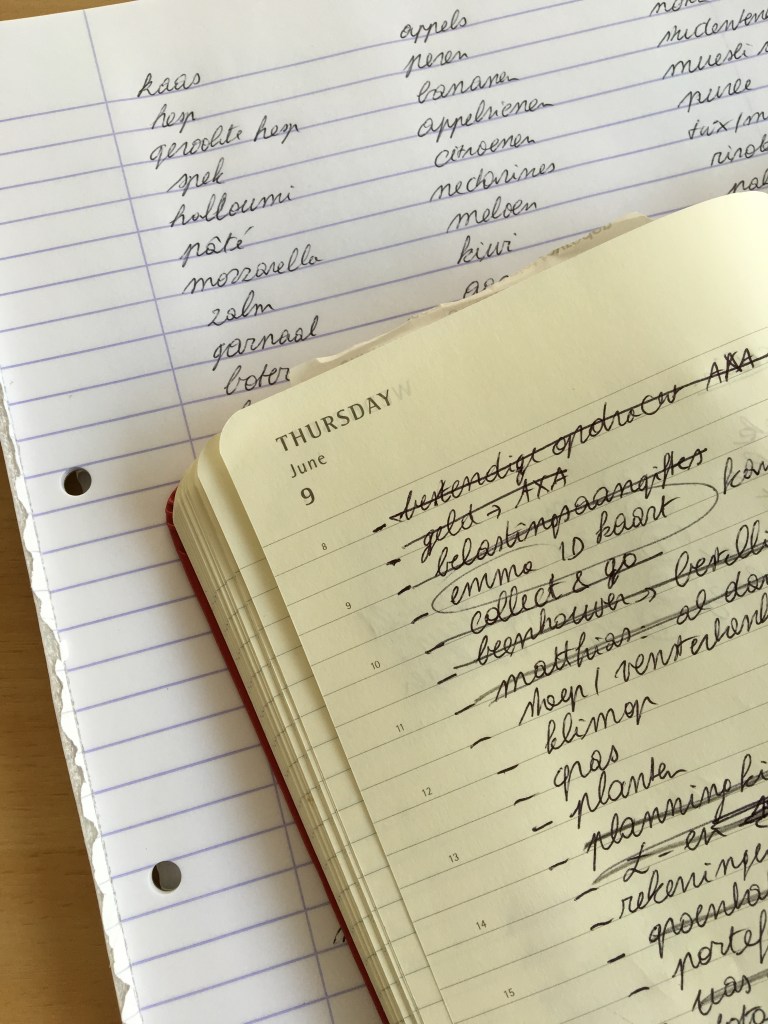 kaas
hesp
gerookte hesp
spek
halloumi
pâté
mozzarella
zalm
garnaal
boter
appels
peren
bananen
appelsienen
citroenen
nectarines
meloen
kiwi
muesli
puree
THURSDAY
June
9
8
9
10
11
12
13
14
15
- bestendige opdracht AXA
- geld → AXA
- belastingsaangiftes
- emma ID kaart
- collect & go
- beenhouwer →
- matthias: al
- stoep / vensterbank
- klimop
- gras
- planten
- planning
- rekeningen
- portef